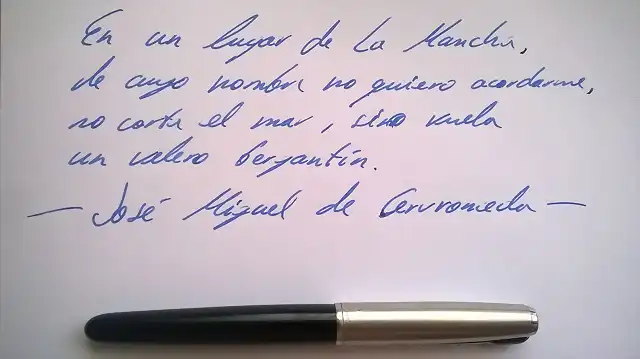 En un lugar de La Mancha,
de cuyo nombre no quiero acordarme,
no corta el mar, sino vuela
un velero bergantín.
— José Miguel de Cervronceda —